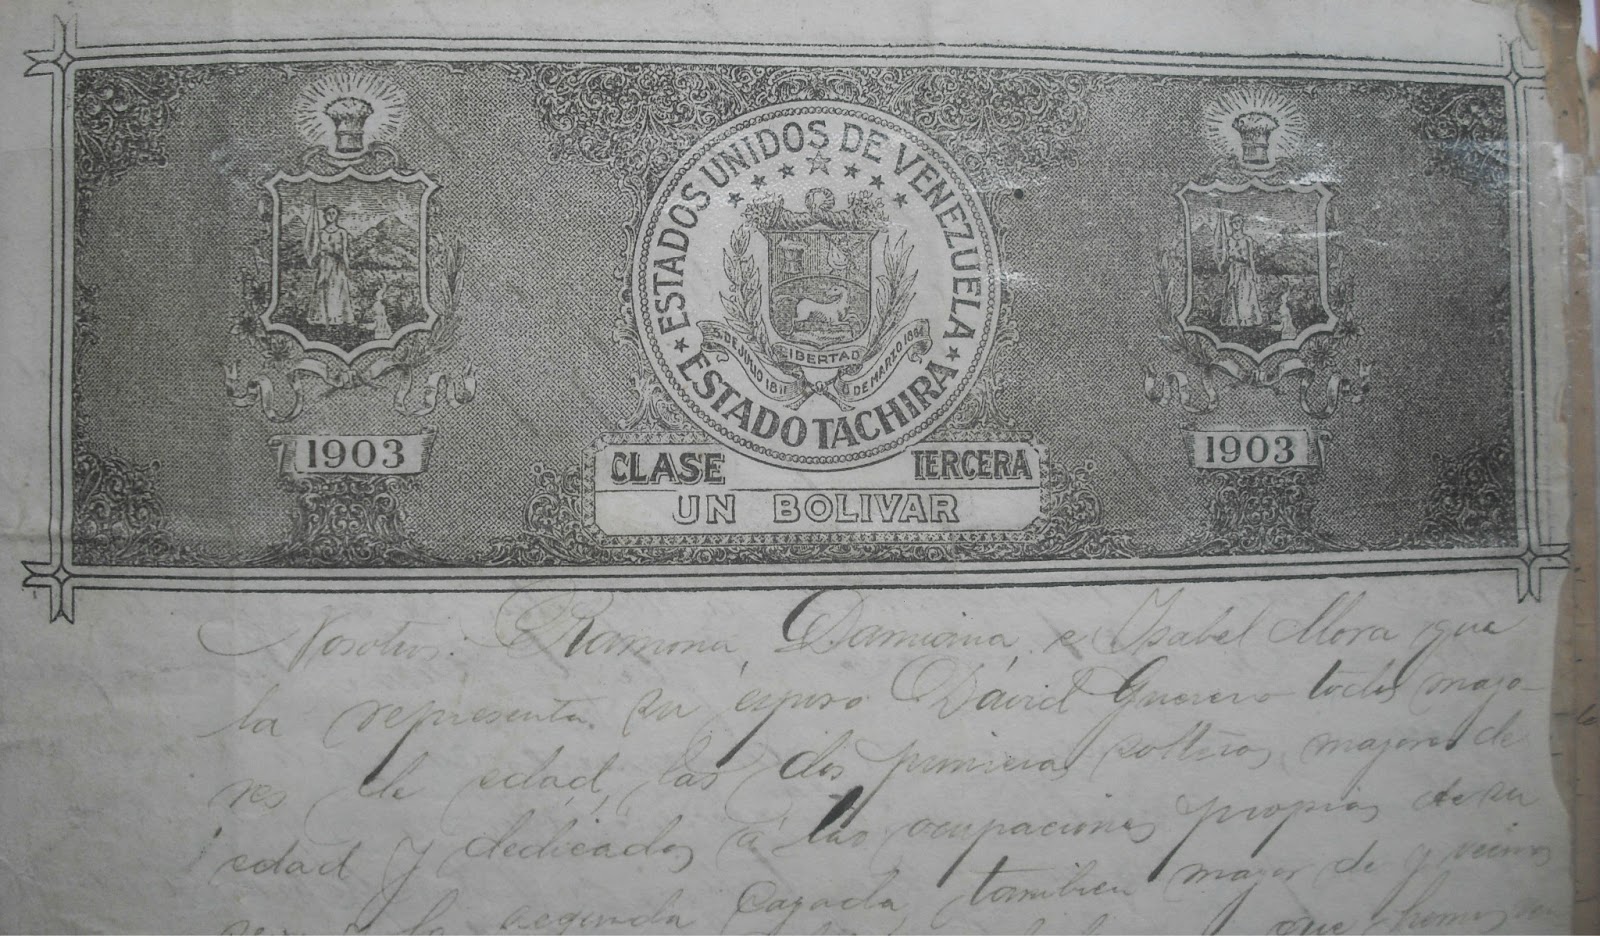 ESTADOS UNIDOS DE VENEZUELA
LIBERTAD
5 DE JULIO 1811
DE MARZO 1864
ESTADO TACHIRA
1903
1903
CLASE TERCERA
UN BOLIVAR
Nosotros: Ramona, Damiana, e Ysabel Mora, que
la representa su esposo David Guerrero todos mayo-
res de edad, las dos primeras solteras, mayores de
edad y dedicadas á las ocupaciones propias de su
la segunda casada, tambien mayor de y vecinos
que hemos